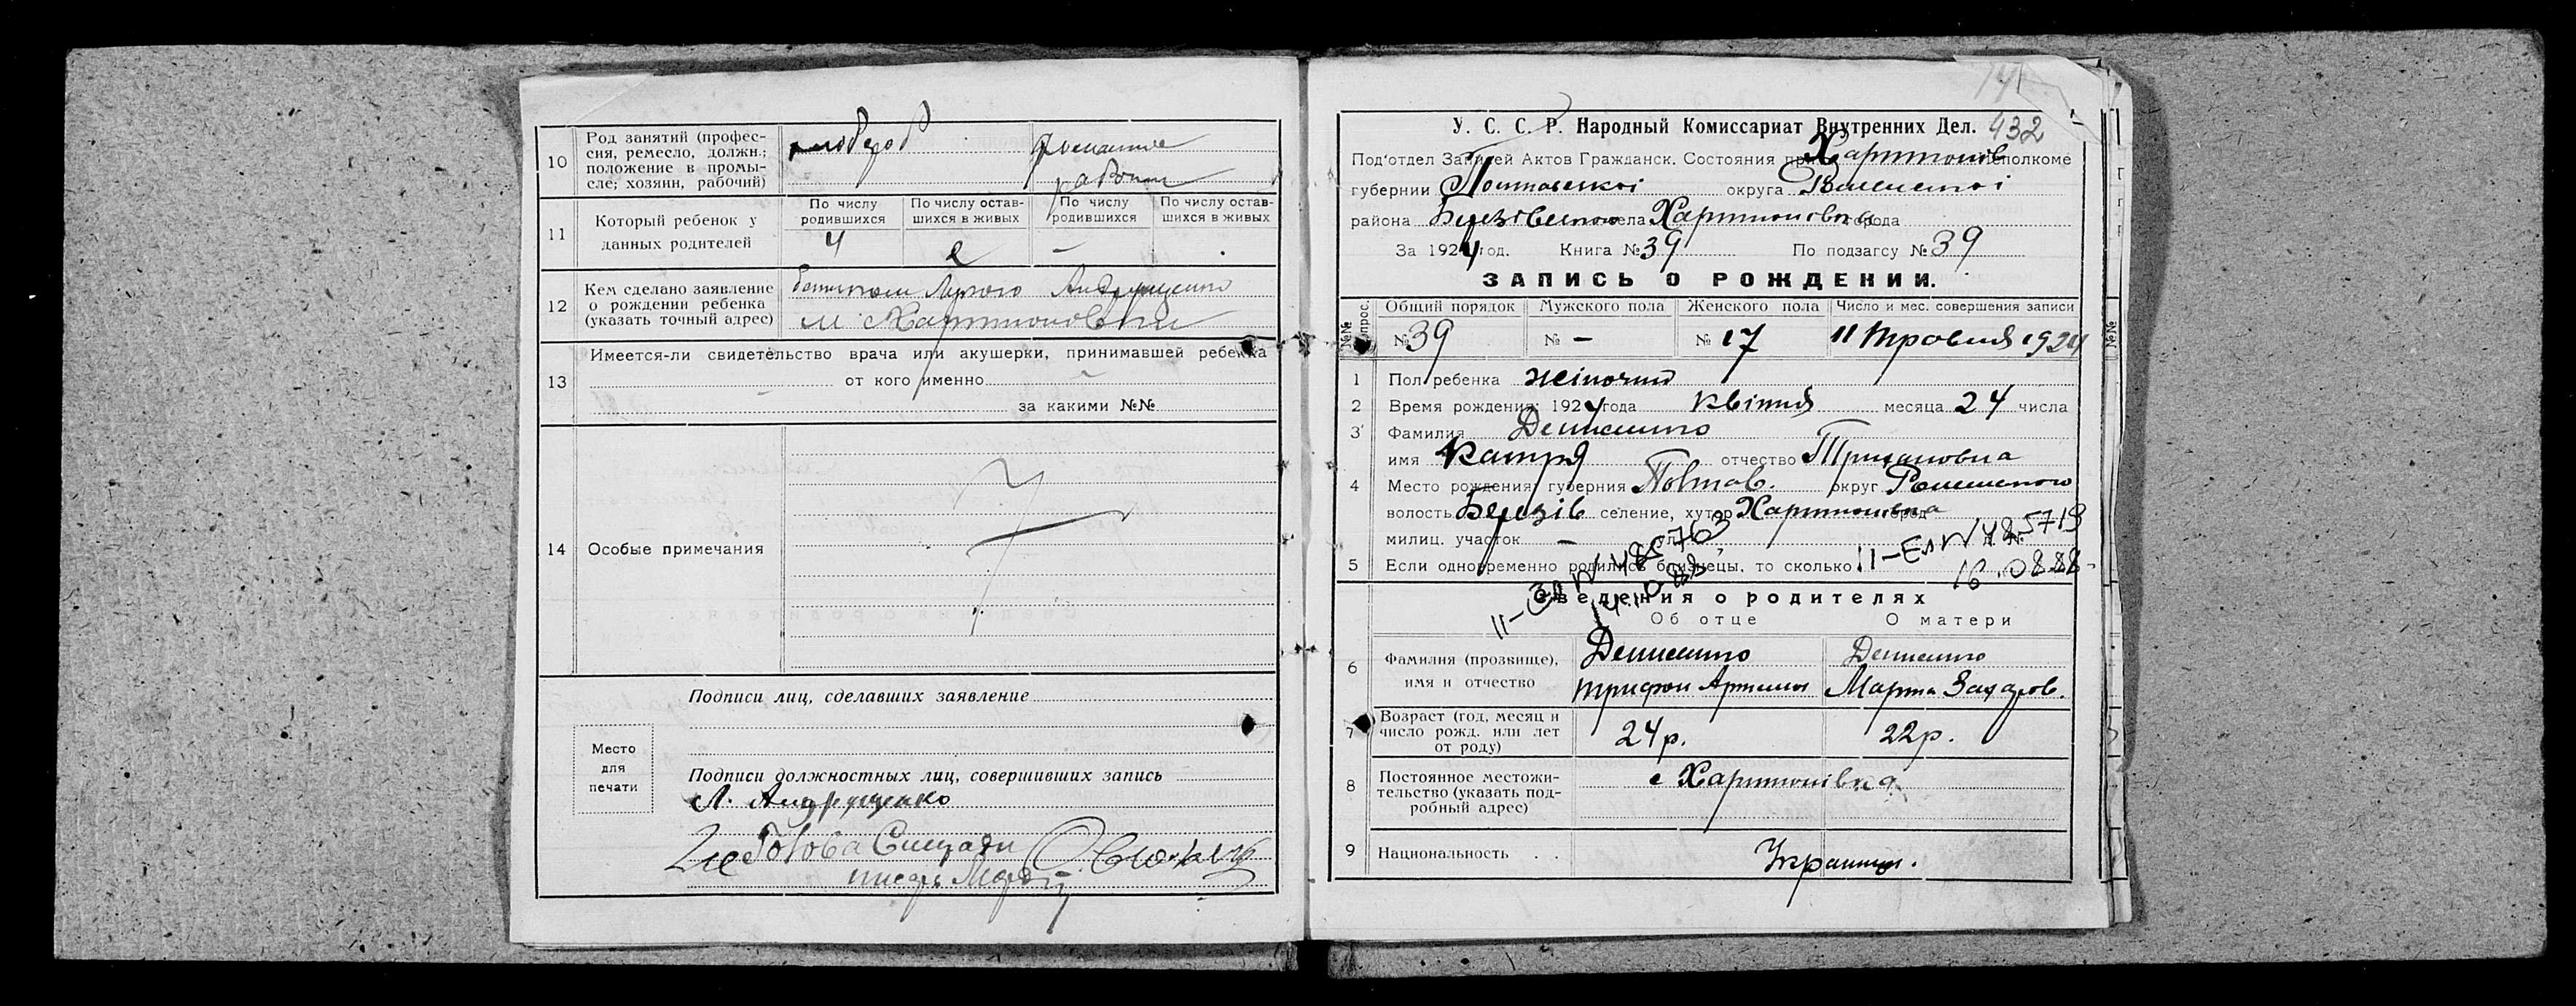 10 Род занятий (профес-
сия, ремесло, должн.;
положение в промы-
сле; хозяин, рабочий)
хлебороб
домашние
работи
11 Который ребенок у
данных родителей
По числу
родившихся
По числу остав-
шихся в живых
По числу
родившихся
По числу остав-
шихся в живых
4 2 –
12 Кем сделано заявление
о рождении ребенка
(указать точный адрес)
Андрущенко
Хартионовки
13 Имеется-ли свидетельство врача или акушерки, принимавшей ребенка
от кого именно
за какими №№
14 Особые примечания
Подписи лиц, сделавших заявление
Место
для
печати
Подписи должностных лиц, совершивших запись
Л. Андрущенко
Голова
писарь
432
У. С. С. Р. Народный Комиссариат Внутренних Дел.
Под'отдел Записей Актов Гражданск. Состояния при Хартионов Исполкоме
губернии Полтавської округа Роменської
района Березівського села Хартионовка города
За 1924 год. Книга № 39 По подзагсу № 39
ЗАПИСЬ О РОЖДЕНИИ.
№№ Общий порядок Мужского пола Женского пола Число и мес. совершения записи
№ 39 № – № 17 11 Травня 1924
1 Пол ребенка жіночий
2 Время рождения: 1924 года квітня месяца 24 числа
3 Фамилия Денисенко
имя Катря отчество Трифановна
4 Место рождения: губерния Полтав. округ Роменского
волость Березів селение, хутор Хартионівка город
милиц. участок –
5 Если одновременно родились близнецы, то сколько
II-ЕЛ № 485719
16.08.88
II-ЕЛ № 485763
Сведения о родителях
Об отце О матери
6 Фамилия (прозвище),
имя и отчество
Денисенко
Трифон Артемов
Денисенко
Марта Захаров.
7 Возраст (год, месяц и
число рожд. или лет
от роду)
24 р. 22 р.
8 Постоянное местожи-
тельство (указать под-
робный адрес)
с Хартионівка
9 Национальность . . Украинци.